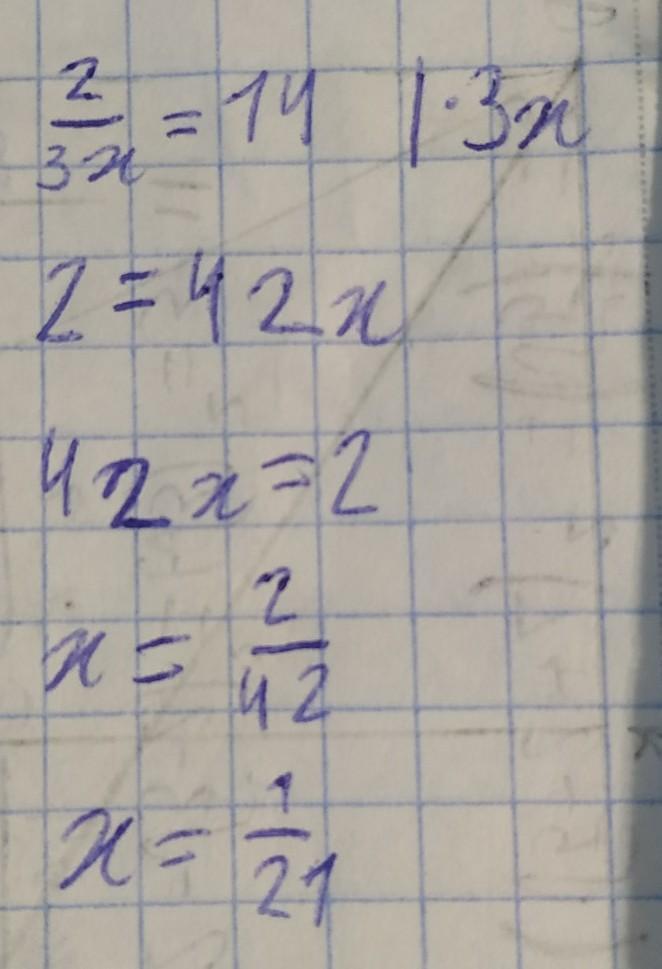 2/3x = 14 |·3x
2 = 42x
42x = 2
x = 2/42
x = 1/21